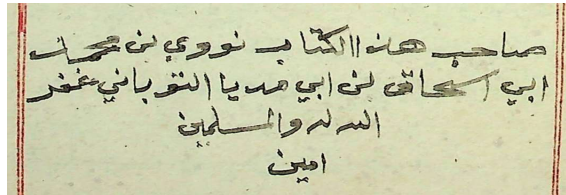 صاحب هذا الكتاب نووي بن محمد
ابي اسحاق بن ابي مديا النقرباني غفر
الله له والمسلمين
امين